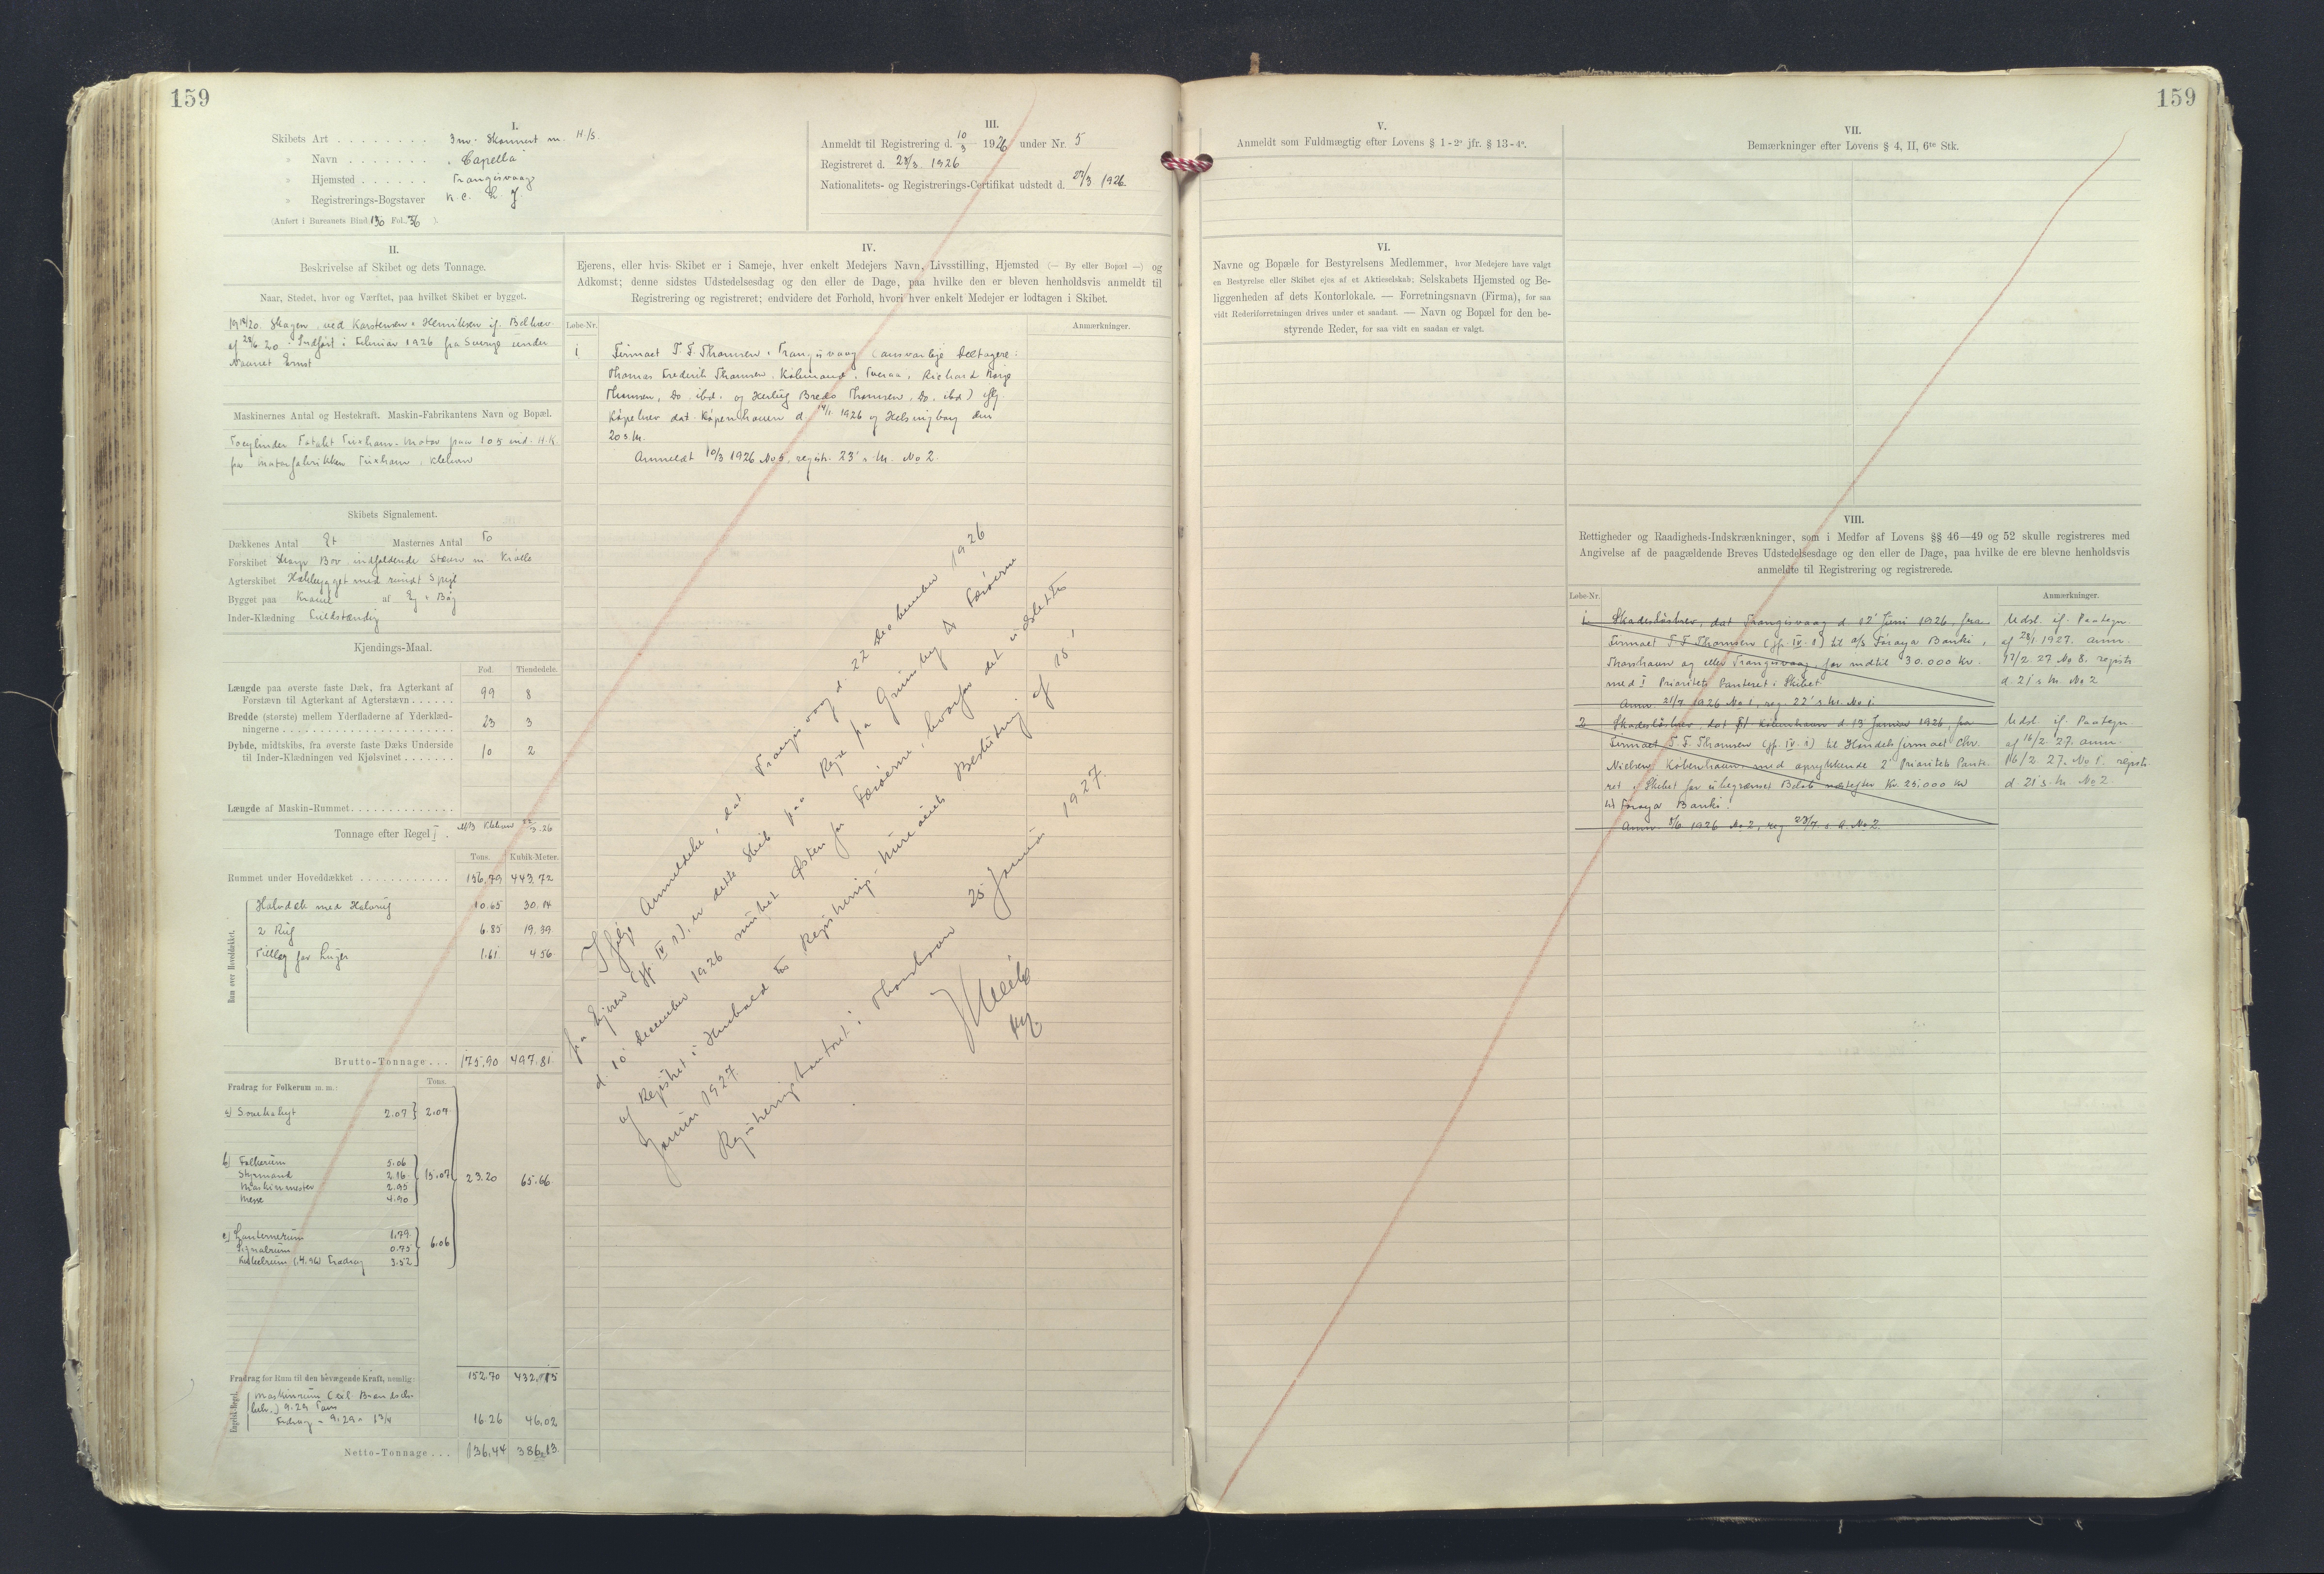 159
I.
Skibets Art . . . . . . . . 3 m. Skonnert m. H/S.
" Navn . . . . . . . "Capella"
" Hjemsted . . . . . . Trangisvaag
" Registrerings-Bogstaver
(Anført i Bureauets Bind Fol. )
II.
Beskrivelse af Skibet og dets Tonnage.
Naar, Stedet, hvor og Værftet, paa hvilket Skibet er bygget.
Skagen, ved Karstensen & Henriksen if. Bilbrev
Indført i Februar 1926 fra Sverige under
Navnet Ernst
Maskinernes Antal og Hestekraft. Maskin-Fabrikantens Navn og Bopæl.
Tocylinder Totakt Tuxham-Motor paa 105 ind. H.K.
fra Motorfabrikken Tuxham, Kbhavn
Skibets Signalement.
Dækkenes Antal Et Masternes Antal To
Forskibet Skarp Bov indfaldende Stævn m
Agterskibet Hækbygget med rundt Spejl
Bygget paa Kravel af Eg & Bøg
Inder-Klædning Fuldstændig
Kjendings-Maal.
Fod. Tiendedele.
Længde paa øverste faste Dæk, fra Agterkant af
Forstævn til Agterkant af Agterstævn . . . . . . 99 8
Bredde (største) mellem Yderfladerne af Yderklæd-
ningerne . . . . . . 23 3
Dybde, midtskibs, fra øverste faste Dæks Underside
til Inder-Klædningen ved Kjølsvinet . . . . . . . 10 2
Længde af Maskin-Rummet . . . . . . . . . . . . .
Tonnage efter Regel I.
Tons. Kubik-Meter.
Rummet under Hoveddækket . . . . . . . . . . . . 156.79 443.72
Rum over Hoveddækket.
Halvdæk med Halvrug 10.65 30.14
2 Ruf 6.85 19.39
Tillæg for Luger 1.61 4.56
Brutto-Tonnage . . . 175.90 497.81
Fradrag for Folkerum m. m.: Tons.
a) 2.07 2.07
b) Folkerum 5.06
Styrmand 2.16
Maskinmester 2.95
Messe 4.90
15.07 23.20 65.66
c) Lanternerum 1.79
Signalrum 0.75
3.52
6.06
152.70 432.15
Fradrag for Rum til den bevægende Kraft, nemlig:
Engelsk Regel.
Maskinrum
9.29 Tons
Fradrag = 9.29 × 1 3/4 16.26 46.02
Netto-Tonnage . . . 136.44 386.13
III.
Anmeldt til Registrering d. 10/3 1926 under Nr. 5
Registreret d. 23/3 1926
Nationalitets- og Registrerings-Certifikat udstedt d. 23/3 1926.
IV.
Ejerens, eller hvis Skibet er i Sameje, hver enkelt Medejers Navn, Livsstilling, Hjemsted (— By eller Bopæl —) og
Adkomst; denne sidstes Udstedelsesdag og den eller de Dage, paa hvilke den er bleven henholdsvis anmeldt til
Registrering og registreret; endvidere det Forhold, hvori hver enkelt Medejer er lodtagen i Skibet.
Løbe-Nr. Anmærkninger.
1 Firmaet T. F. Thomsen, Trangisvaag (ansvarlige Deltagere:
Thomas Frederik Thomsen, Købmand, Tveraa, Richard
Thomsen, Do, ibd. og Herluf Bredo Thomsen, Do, ibd) iflg.
Købebrev dat. København d. 14/1 1926 og Helsingborg den
20 s. M.
Anmeldt 10/3 1926 No 5, registr. 23' s. M. No 2.
Ifølge Anmeldelse, dat. Trangisvaag d. 22 December 1926
fra Ejeren (jfr. IV 1), er dette Skib paa Rejse fra Grimsby til Færøerne
d. 10 December 1926 mistet Østen for Færøerne, hvorfor det udslettes
af Registret i Henhold til Registrerings-Bureauets Beslutning af 15'
Januar 1927
Registreringskontoret i Thorshavn 25 Januar 1927.
159
V.
Anmeldt som Fuldmægtig efter Lovens § 1-2º jfr. § 13-4º.
VI.
Navne og Bopæle for Bestyrelsens Medlemmer, hvor Medejere have valgt
en Bestyrelse eller Skibet ejes af et Aktieselskab; Selskabets Hjemsted og Be-
liggenheden af dets Kontorlokale. — Forretningsnavn (Firma), for saa
vidt Rederiforretningen drives under et saadant. — Navn og Bopæl for den be-
styrende Reder, for saa vidt en saadan er valgt.
VII.
Bemærkninger efter Lovens § 4, II, 6te Stk.
VIII.
Rettigheder og Raadigheds-Indskrænkninger, som i Medfør af Lovens §§ 46—49 og 52 skulle registreres med
Angivelse af de paagældende Breves Udstedelsesdage og den eller de Dage, paa hvilke de ere blevne henholdsvis
anmeldte til Registrering og registrerede.
Løbe-Nr. Anmærkninger.
1. Skadesløsbrev, dat Trangisvaag d. 12' Juni 1926, fra Udsl. if. Paategn.
Firmaet T. F. Thomsen (jfr. IV. 1) til A/S Føroya Banki, anm.
Thorshavn og eller Trangisvaag, for indtil 30.000 Kr. 17/2 27 No 8. registr.
med I Prioritets Panteret i Skibet. d. 21' s. M. No 2
Anm. 21/7 1926 No 1, reg. 22' s. M. No 1.
2 Skadesløsbrev, dat København d 19 Januar 1926, fra Udsl. if. Paategn
Firmaet T. F. Thomsen (jfr. IV. 1) til Handelsfirmaet Chr. af 16/2 27. anm.
Nielsen, København, med oprykkende 2' Prioritets Pante- No 1. registr.
ret i Skibet for ubegrænset Beløb næstefter Kr. 25.000 Kr d. 21' s. M. No 2.
til Føroya Banki.
Anm. 1926 No 2, reg